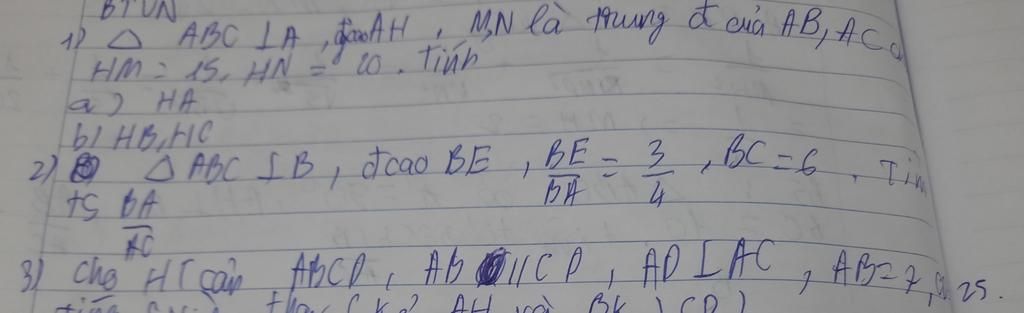 BTVN
1) △ ABC ⊥ A, đcao AH, M,N là trung đ của AB, AC
HM = 15, HN = 20. Tính
a) HA
b) HB, HC
2) △ ABC ⊥ B, đcao BE, BE/BA = 3/4, BC = 6. Tìm
tS BA/AC
3) Cho HT cân ABCD, AB // CD, AD ⊥ AC, AB = 7, 25.
AH và BK ⊥ CD)